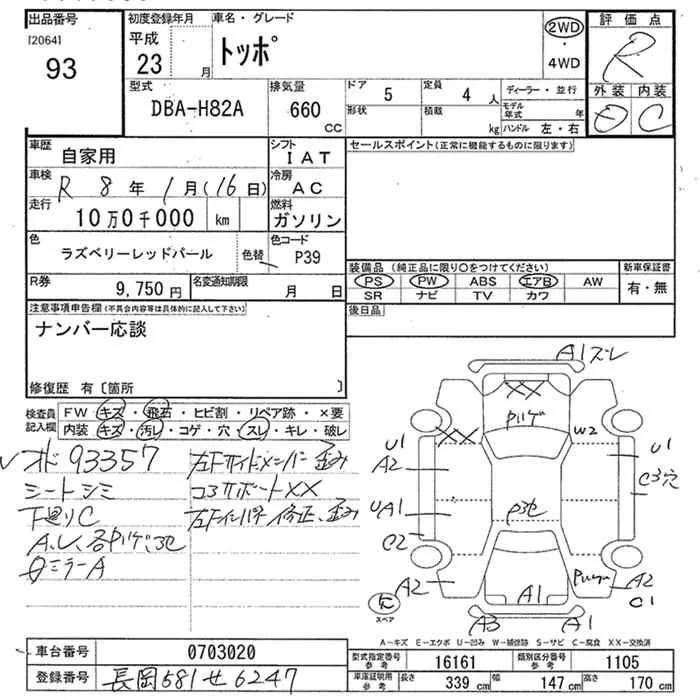 出品番号 初度登録年月 車名・グレード 評価点
[2064] 平成 トッポ 2WD R
93 23 月 ・ 4WD
型式 排気量 ドア 5 定員 4 人 ディーラー・並行 外装 内装
DBA-H82A 660 CC 形状 積載 kg モデル年式 年 D C
ハンドル 左・右
車歴 自家用 シフト IAT セールスポイント(正常に機能するものに限ります)
車検 R 8 年 1 月(16 日) 冷房 AC
走行 10万0千000 km 燃料 ガソリン
色 ラズベリーレッドパール 色替 色コード P39
装備品(純正品に限り○をつけてください) 新車保証書
PS PW ABS エアB AW 有・無
SR ナビ TV カワ
R券 9,750円 名変通知期限 月 日 後日品
注意事項申告欄(不具合内容等は具体的に記入して下さい)
ナンバー応談
修復歴 有〔箇所 〕
検査員記入欄 FW キズ・飛石・ヒビ割・リペア跡・×要
内装 キズ・汚レ・コゲ・穴・スレ・キレ・破レ
オド 93357 左Fサイドメンバー歪み
シートシミ コアサポートXX
下廻りC 左Fインパネ 修正、歪み
A、U、各Pハゲ、e
ミラーA
A1 スレ
XX
Pハゲ
XX
W2
U1
A2
U1
C3穴
UA1
C2
A2
A1
A2
C1
A3
A1
スペア
A-キズ E-エクボ U-凹み W-補修跡 S-サビ C-腐食 XX-交換済
車台番号 0703020 型式指定番号 参考 16161 類別区分番号 参考 1105
登録番号 長岡581せ6247 車庫証明用 参考 長さ 339cm 幅 147cm 高さ 170cm